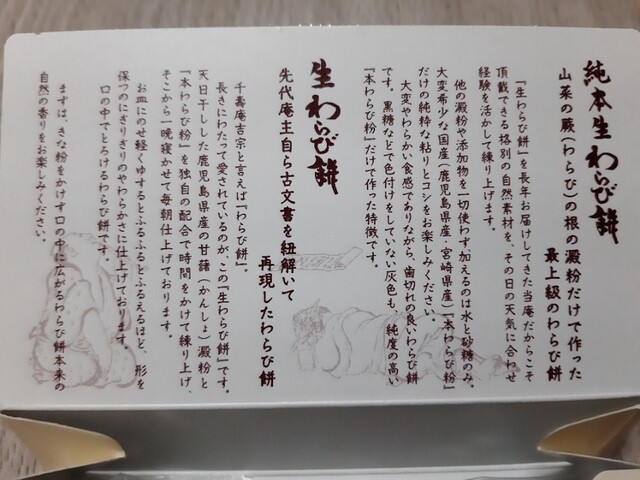 純本生わらび餅
山菜の蕨(わらび)の根の澱粉だけで作った
最上級のわらび餅
『生わらび餅』を長年お届けしてきた当庵だからこそ
頂戴できる格別の自然素材を、その日の天気に合わせ
経験を活かして練り上げます。
他の澱粉や添加物を一切使わず加えるのは水と砂糖のみ。
大変希少な国産(鹿児島県産・宮崎県産)『本わらび粉』
だけの純粋な粘りとコシをお楽しみください。
大変やわらかい食感でありながら、歯切れの良いわらび餅
です。黒糖などで色付けをしていない灰色も、純度の高い
『本わらび粉』だけで作った特徴です。
生わらび餅
先代庵主自ら古文書を紐解いて
再現したわらび餅
千壽庵吉宗と言えば『わらび餅』。
長きにわたって愛されているのが、この『生わらび餅』です。
天日干しした鹿児島県産の甘藷(かんしょ)澱粉と
『本わらび粉』を独自の配合で時間をかけて練り上げ、
そこから一晩寝かせて毎朝仕上げております。
お皿にのせ軽くゆするとふるふるとふるえるほど、形を
保つのにぎりぎりのやわらかさに仕上げております。
口の中でとろけるわらび餅です。
まずは、きな粉をかけず口の中に広がるわらび餅本来の
自然の香りをお楽しみください。